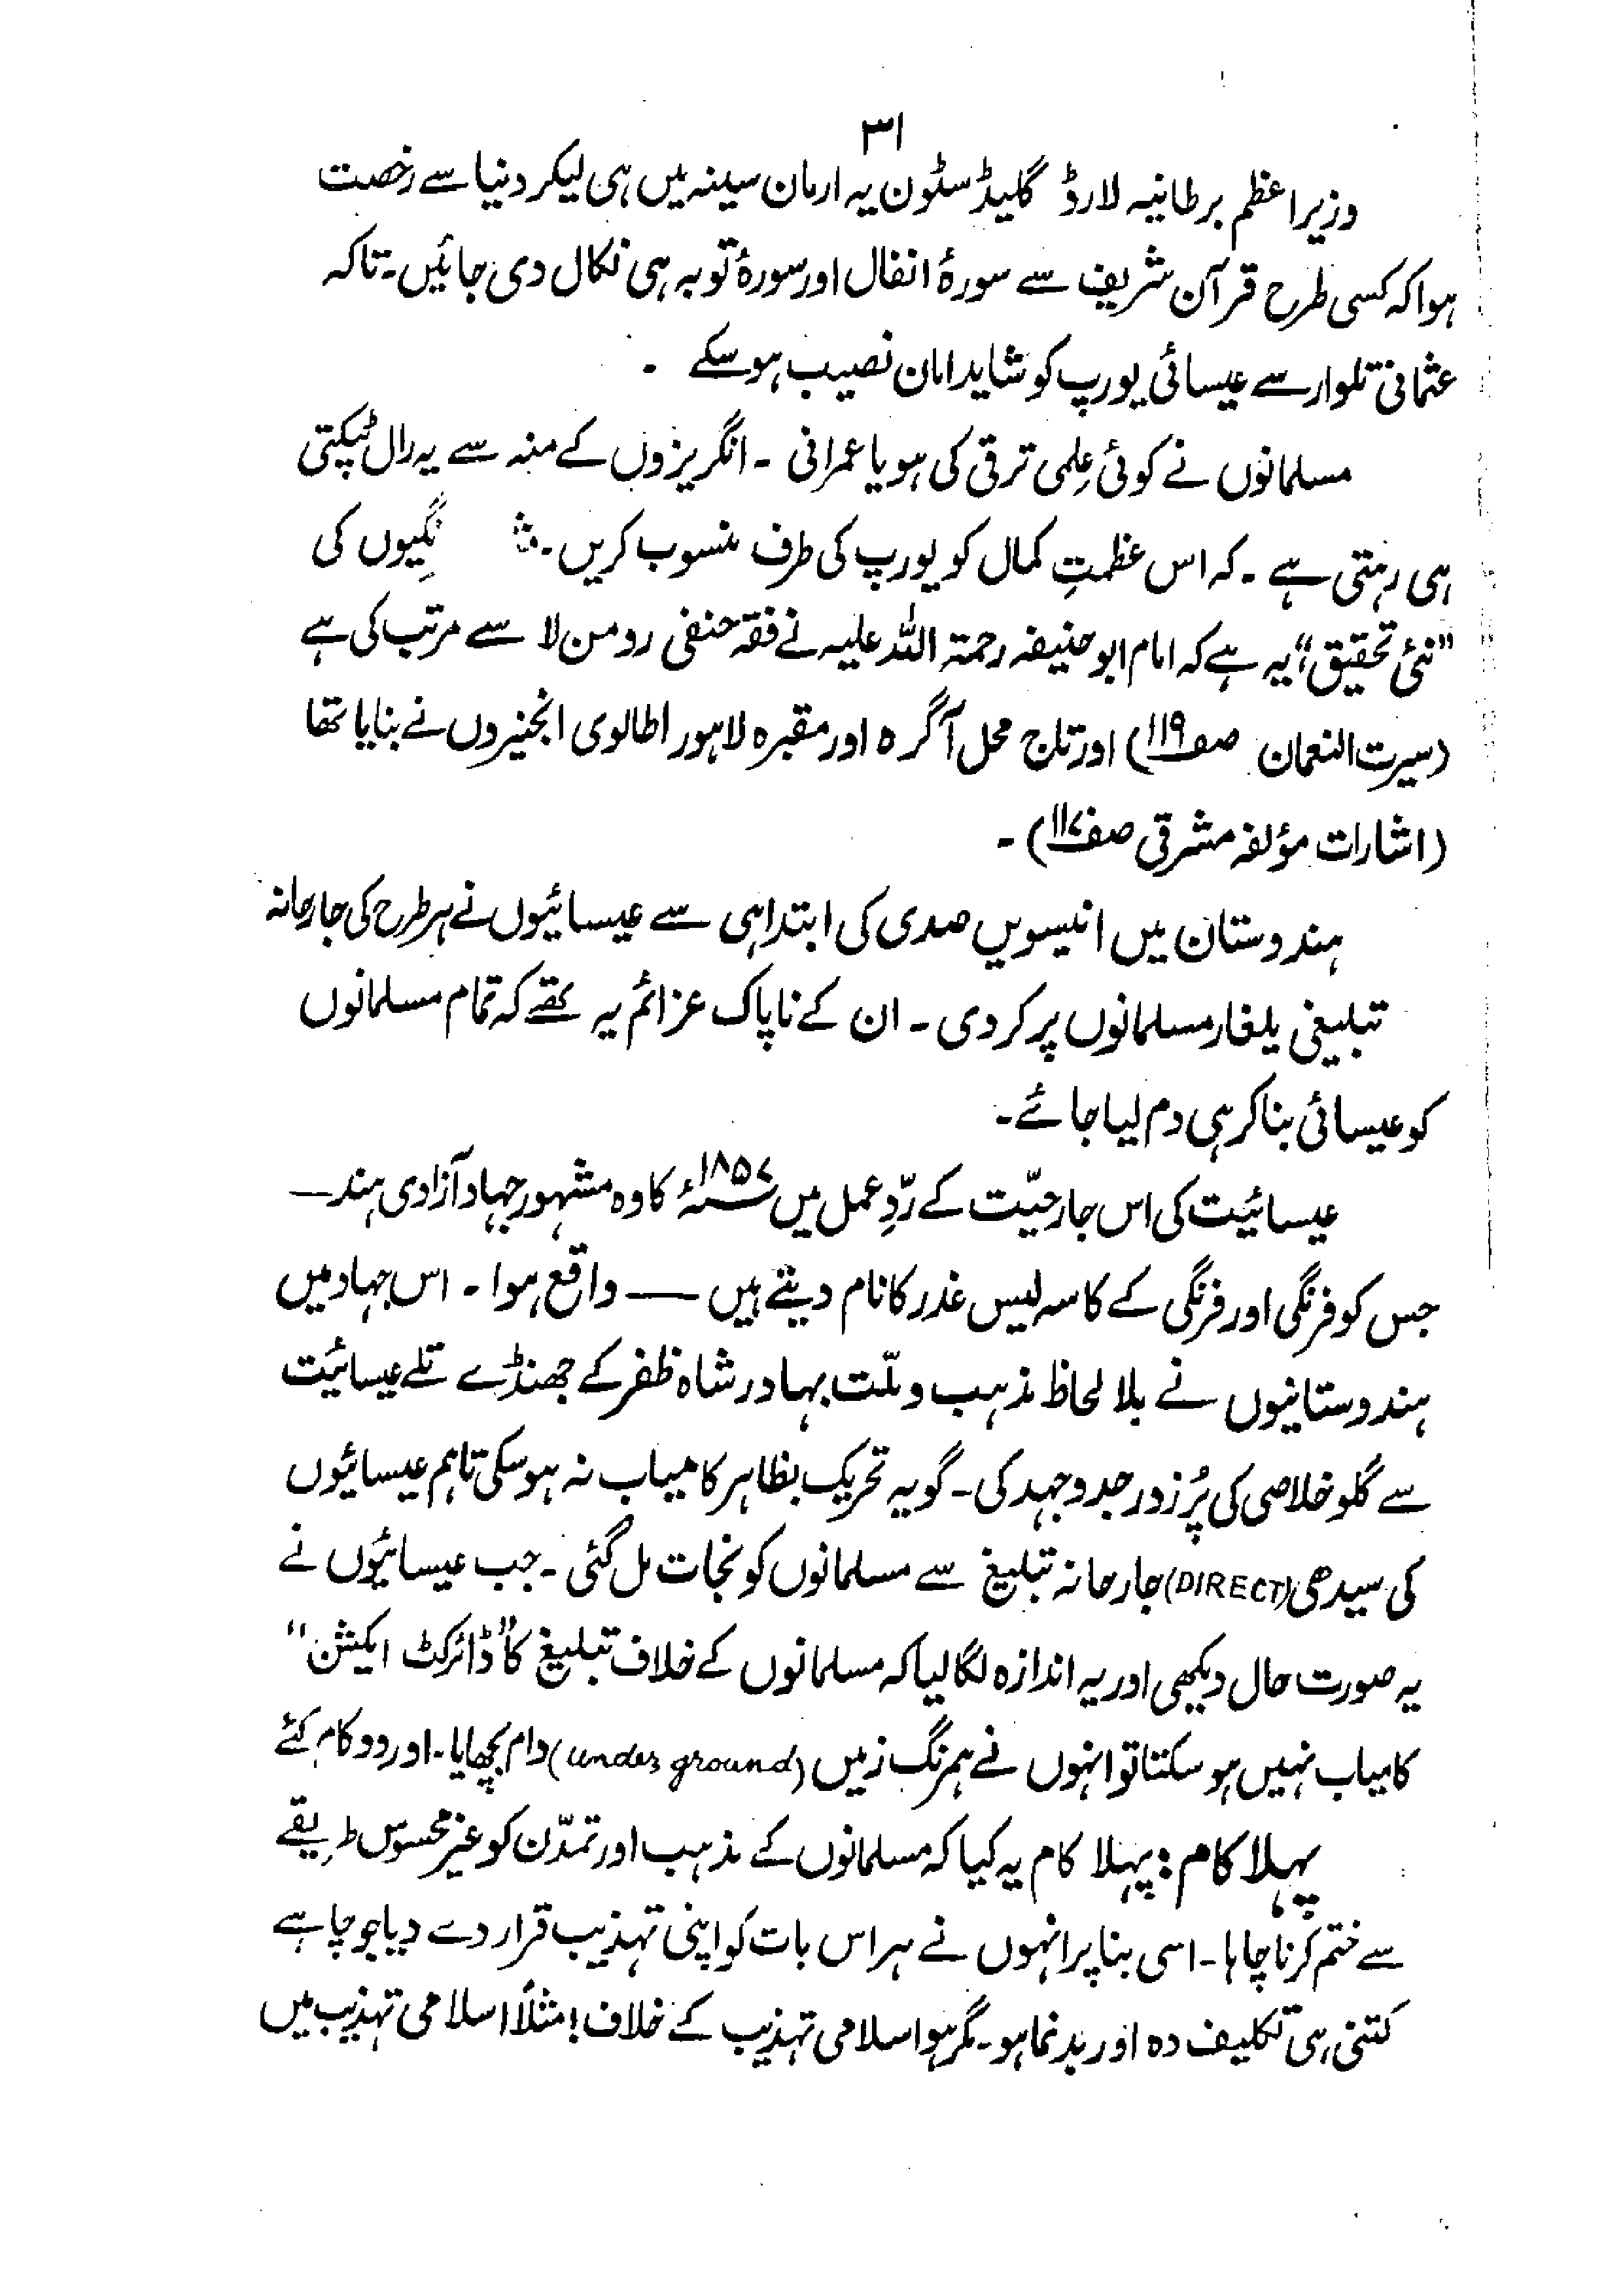 ۳۱
وزیراعظم برطانیہ لارڈ گلیڈسٹون یہ ارمان سینہ میں ہی لیکر دنیا سے رخصت
ہوا کہ کسی طرح قرآن شریف سے سورۂ انفال اور سورۂ توبہ ہی نکال دی جائیں۔ تاکہ
عثمانی تلوار سے عیسائی یورپ کو شاید امان نصیب ہو سکے ۔
مسلمانوں نے کوئی علِمی ترقی کی ہو یا عمرانی ۔ انگریزوں کے منہ سے یہ رال ٹپکتی
ہی رہتی ہے ۔ کہ اس عظمتِ کمال کو یورپ کی طرف منسوب کریں۔ کی
"نئی تحقیق" یہ ہے کہ امام ابو حنیفہ رحمۃ اللہ علیہ نے فقہ حنفی رومن لا سے مرتب کی ہے
(سیرت النعمان صفہ ۱۱۹) اور تاج محل آگرہ اور مقبرہ لاہور اطالوی انجنیروں نے بنایا تھا
(اشارات مؤلفہ مشرقی صفہ ۱۱۷) ۔
ہندوستان میں انیسویں صدی کی ابتدا ہی سے عیسائیوں نے ہر طرح کی جارحانہ
تبلیغی یلغار مسلمانوں پر کر دی ۔ ان کے ناپاک عزائم یہ تھے کہ تمام مسلمانوں
کو عیسائی بنا کر ہی دم لیا جائے ۔
عیسائیت کی اس جارحیّت کے ردِّ عمل میں ۱۸۵۷ء کا وہ مشہور جہاد آزادی ہند —
جس کو فرنگی اور فرنگی کے کاسہ لیس غدر کا نام دیتے ہیں — واقع ہوا ۔ اس جہاد میں
ہندوستانیوں نے بلا لحاظ مذہب و ملّت بہادر شاہ ظفر کے جھنڈے تلے عیسائیت
سے گلو خلاصی کی پُر زور جدوجہد کی ۔ گو یہ تحریک بظاہر کامیاب نہ ہو سکی تاہم عیسائیوں
کی سیدھی (DIRECT) جارحانہ تبلیغ سے مسلمانوں کو نجات مل گئی ۔ جب عیسائیوں نے
یہ صورت حال دیکھی اور یہ اندازہ لگا لیا کہ مسلمانوں کے خلاف تبلیغ کا "ڈائرکٹ ایکشن"
کامیاب نہیں ہو سکتا تو انہوں نے ہمرنگ زمیں (under ground) دام بچھایا ۔ اور دو کام کئے
پہلا کام : پہلا کام یہ کیا کہ مسلمانوں کے مذہب اور تمدّن کو غیر محسوس طریقے
سے ختم کرنا چاہا ۔ اسی بنا پر انہوں نے ہر اس بات کو اپنی تہذیب قرار دے دیا جو چاہے
کتنی ہی تکلیف دہ اور بدنما ہو ۔ مگر ہو اسلامی تہذیب کے خلاف ! مثلاً اسلامی تہذیب میں